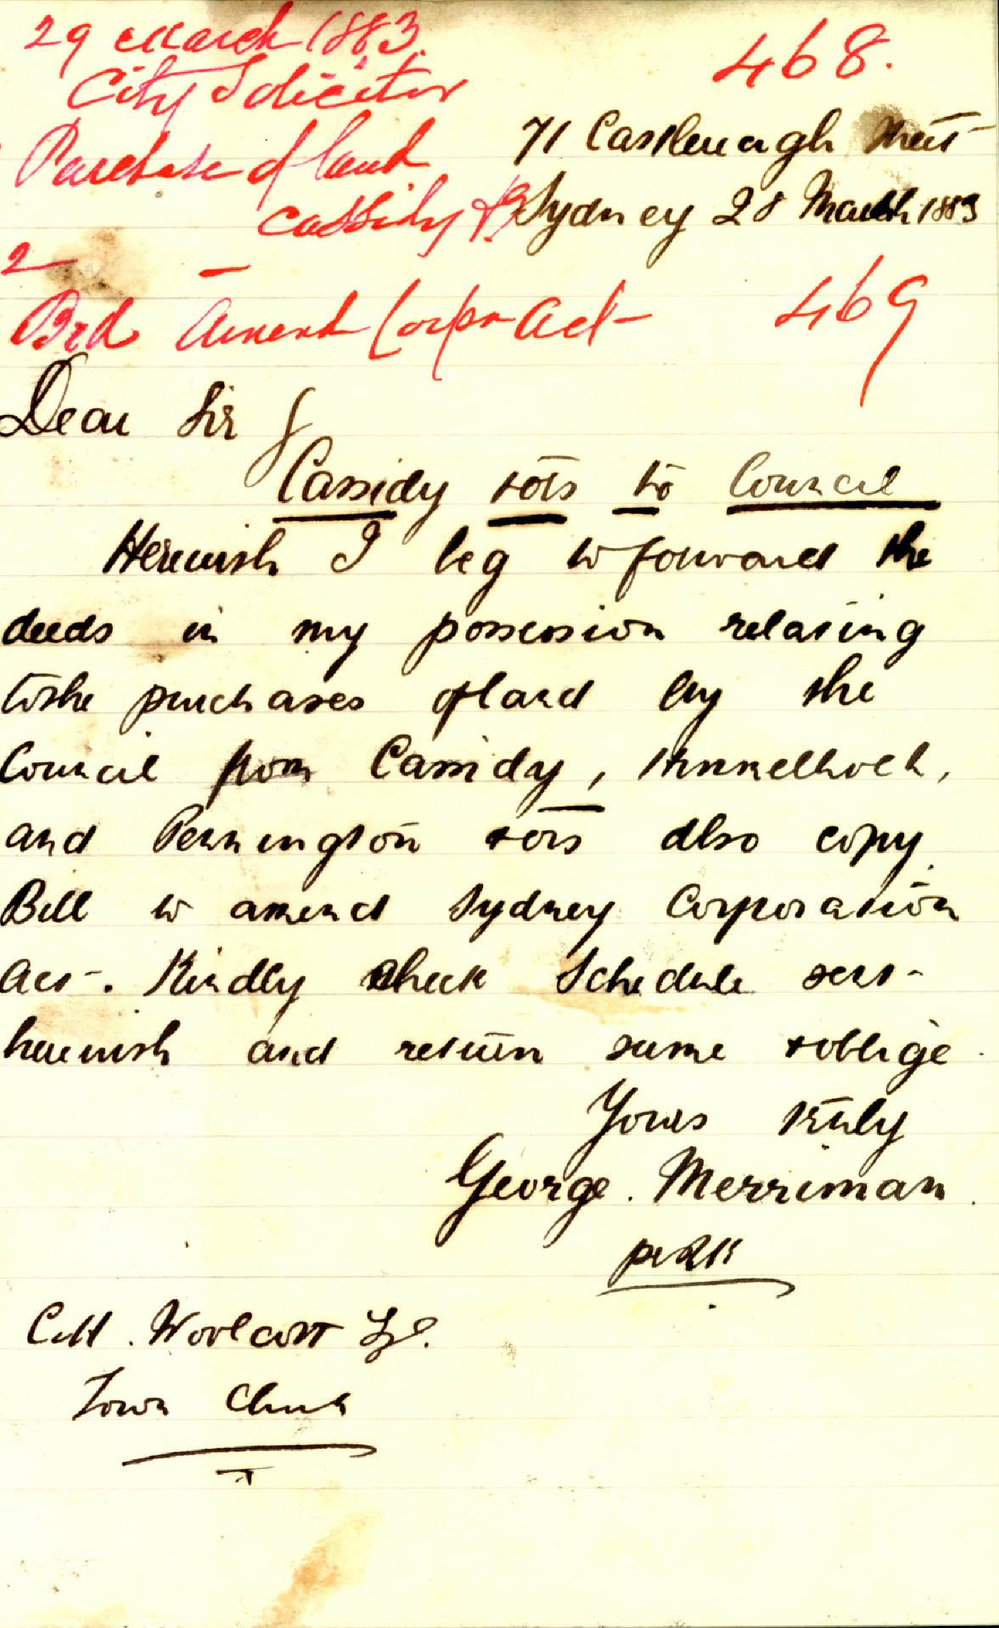 29 March 1883
468.
City Solicitor
Purchase of land
Cassidy &
71 Castlereagh Street
Sydney 28 March 1883
2
Amend Corpn Act
469
Dear Sir
Cassidy & ors to Council
Herewith I beg to forward the
deeds in my possession relating
to the purchases of land by the
Council from Cassidy,
and Pennington & ors also copy
Bill to amend Sydney Corporation
Act. Kindly check Schedule sent
herewith and return same & oblige
Yours truly
George Merriman
per
C.H. Woolcott Esq.
Town Clerk